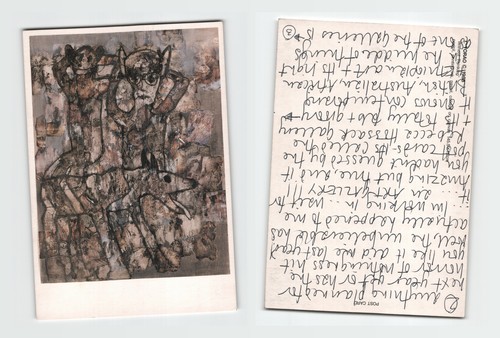 ② anything planned for
next year yet or has the
horror of nothingness hit
you like it did me last year?
Well the unbelievable has
actually happened to me
Im working in... wait for
it... ART GALLERY!!!
Amazing but true and if
you hadnt guessed by the
post cards its called the
Rebecca Hossack gallery
totally groovy
it shows contemporary
Australian, African
& European art & its right
in the middle of things
one of the galleries is
POST CARD